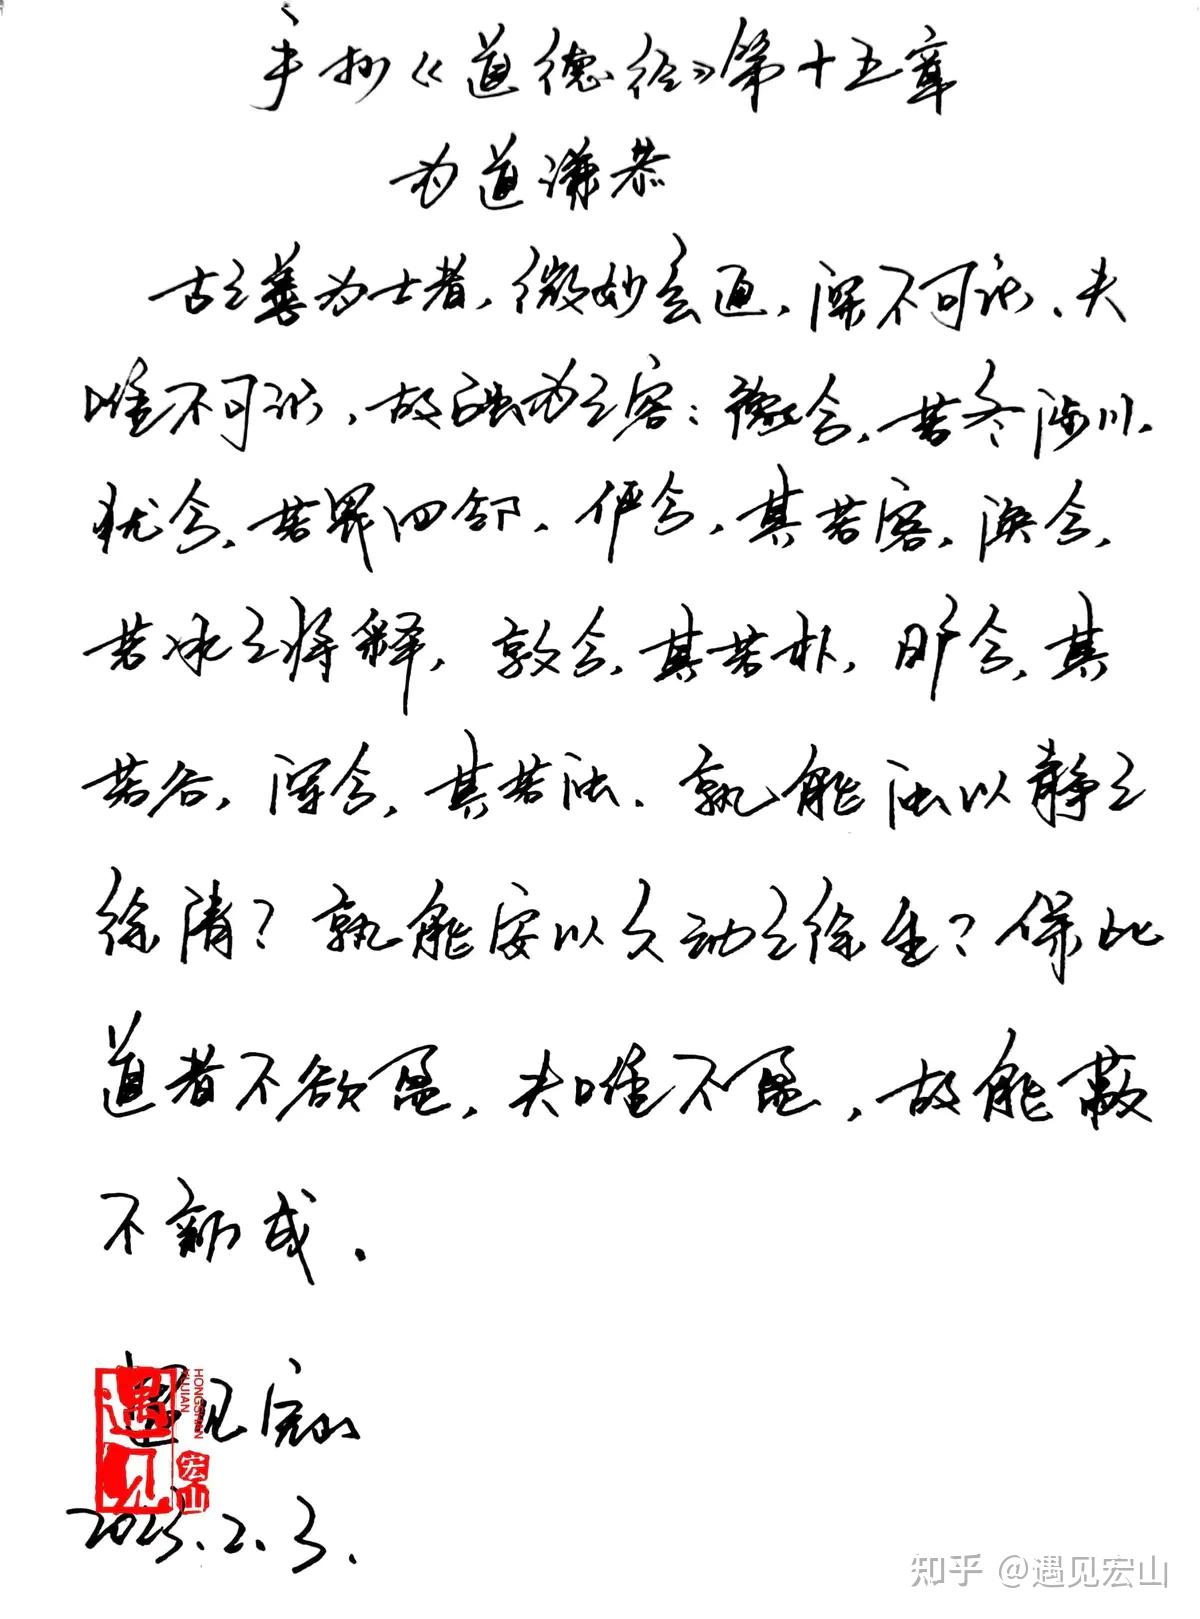 手抄《道德经》第十五章
为道谦恭
古之善为士者，微妙玄通，深不可识、夫
唯不可识，故强为之容：豫兮，若冬涉川，
犹兮，若畏四邻，俨兮，其若客，涣兮，
若冰之将释，敦兮，其若朴，旷兮，其
若谷，浑兮，其若浊．孰能浊以静之
徐清？孰能安以久动之徐生？保此
道者不欲盈，夫唯不盈，故能蔽
不新成．
遇见宏山
遇见
HONGSHAN
YUJIAN
宏山
2023.2.3.
知乎 @遇见宏山